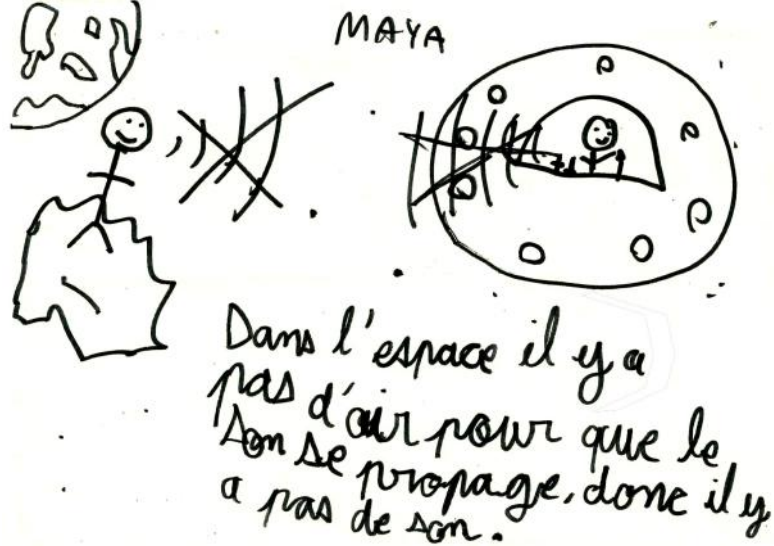 MAYA
Dans l'espace il y a
pas d'air pour que le
son se propage, donc il y
a pas de son.